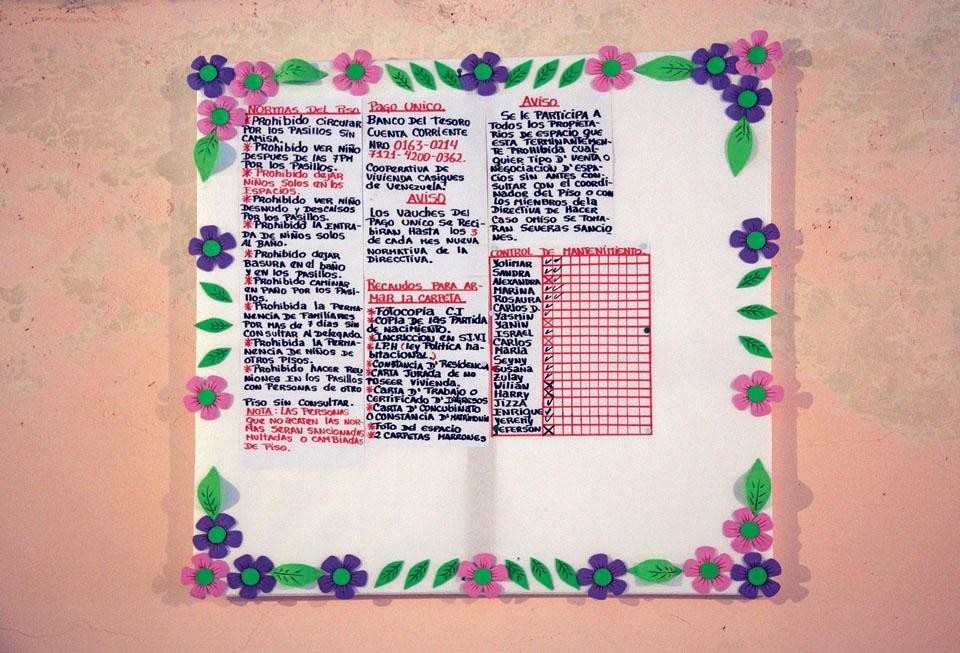 Normas Del Piso
*Prohibido Circular
Por los Pasillos Sin
Camisa.
*Prohibido ver Niño
Despues de las 7PM
Por los Pasillos.
*Prohibido dejar
Niños Solos en los
Espacios.
*Prohibido ver Niño
Desnudo y Descalsos
Por los Pasillos.
*Prohibido la entra-
da de Niños Solos
al Baño.
*Prohibido dejar
Basura en el baño
y en los Pasillos.
*Prohibido Caminar
en Paño por los Pasi-
llos.
*Prohibida la Perma-
nencia de Familiares
Por mas de 7 dias Sin
Consultar al Delegado.
*Prohibida la Perma-
nencia de Niños de
otros Pisos.
*Prohibido hacer Reu
niones en los Pasillos
con Personas de otro
Piso Sin Consultar.
Nota: Las Personas
que no acaten las nor-
mas Seran Sancionadas
Multadas o Cambiadas
de Piso.
Pago Unico.
Banco del Tesoro
Cuenta Corriente
Nro 0163-0214
7121-4200-0362.
Cooperativa de
Vivienda Casiques
de Venezuela.
Aviso
Los Vauches del
Pago unico se Reci-
biran Hasta los 3
de cada mes nueva
normativa de la
Direcctiva.
Recaudos Para Ar-
mar la Carpeta.
*Fotocopia C.I
*Copia de las Partida
de nacimiento.
*Incriccion en S.I.V.I
*L.P.H (ley Politica ha-
bitacional.)
*Constancia D' Residencia
*Carta Jurada de no
Poseer Vivienda.
*Carta D' Trabajo o
Certificado D' Ingresos
*Carta D' Concubinato
o Constancia D' Matrimonio
*Foto del espacio
*2 Carpetas Marrones
Aviso
Se le Participa a
Todos los Propieta-
rios de espacio que
esta Terminantemen-
te Prohibida Cual-
quier Tipo D' Venta o
Negociacion D' Espa-
cios Sin antes con-
sultar con el Coordi-
nador del Piso o con
los Miembros de la
Directiva de Hacer
Caso omiso se Toma-
ran Severas Sancio
nes.
Control de Mantenimiento.
Yolimar
Sandra
Alexandra
Marina
Rosaura
Carlos D.
Yasmin
Yanin
Israel
Carlos
Maria
Seyny
Susana
Zulay
Wilian
Harry
Jizza
Enrique
Yeremy
Jeferson